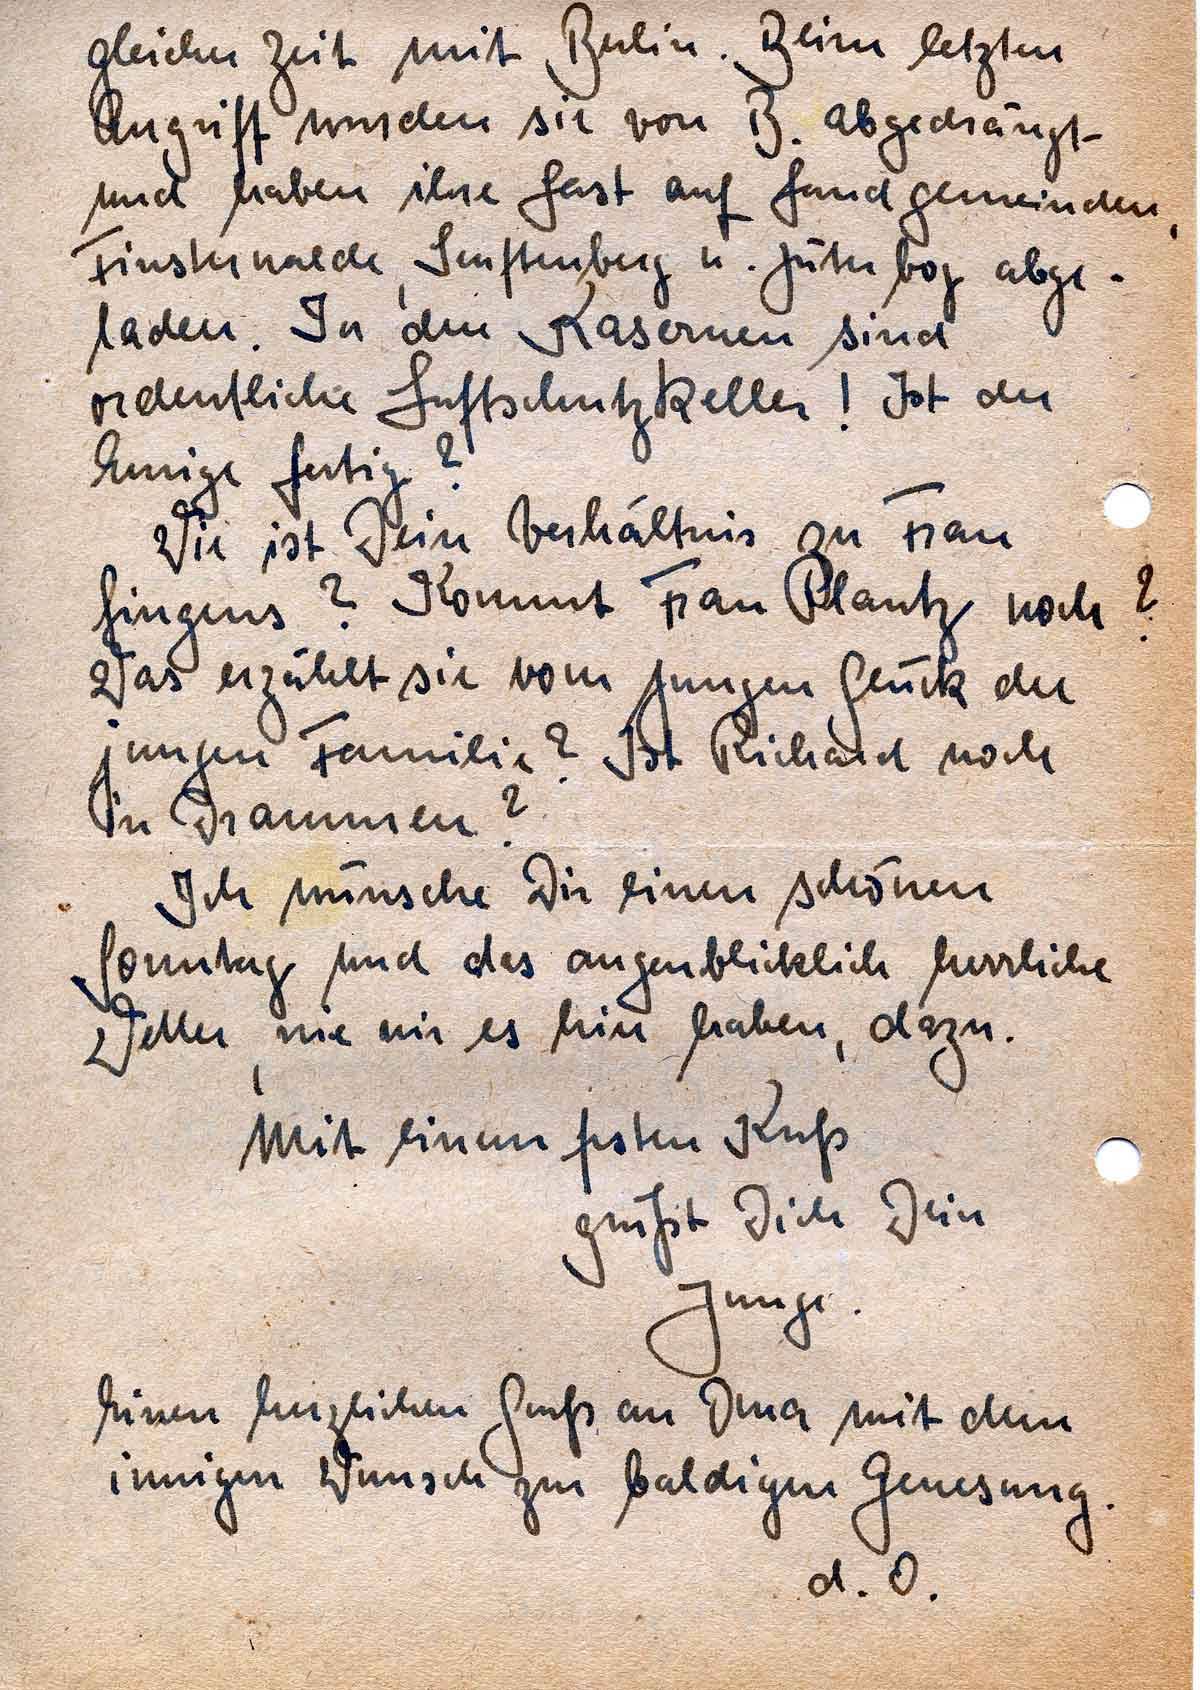 gleichen Zeit mit Berlin. Beim letzten
Angriff wurden sie von B. abgedrängt
und haben ihre Last auf Landgemeinden,
Finsterwalde, Senftenberg u. Jüterbog abge-
laden. In den Kasernen sind
ordentliche Luftschutzkeller! Ist der
Eurige fertig?
Wie ist Dein Verhältnis zu Frau
Lingens? Kommt Frau Plantz noch?
Was erzählt sie vom jungen Glück der
jungen Familie? Ist Richard noch
in Drammen?
Ich wünsche Dir einen schönen
Sonntag und das augenblicklich herrliche
Wetter, wie wir es hier haben, dazu.
Mit einem festen Kuß
grüßt Dich Dein
Junge.
Einen herzlichen Gruß an Oma mit dem
innigen Wunsch zur baldigen Genesung.
d. O.